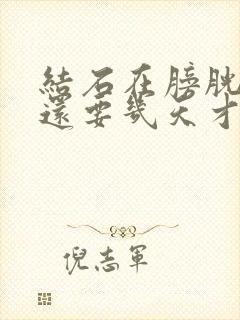 結石在膀胱
還要幾天才
倪志軍